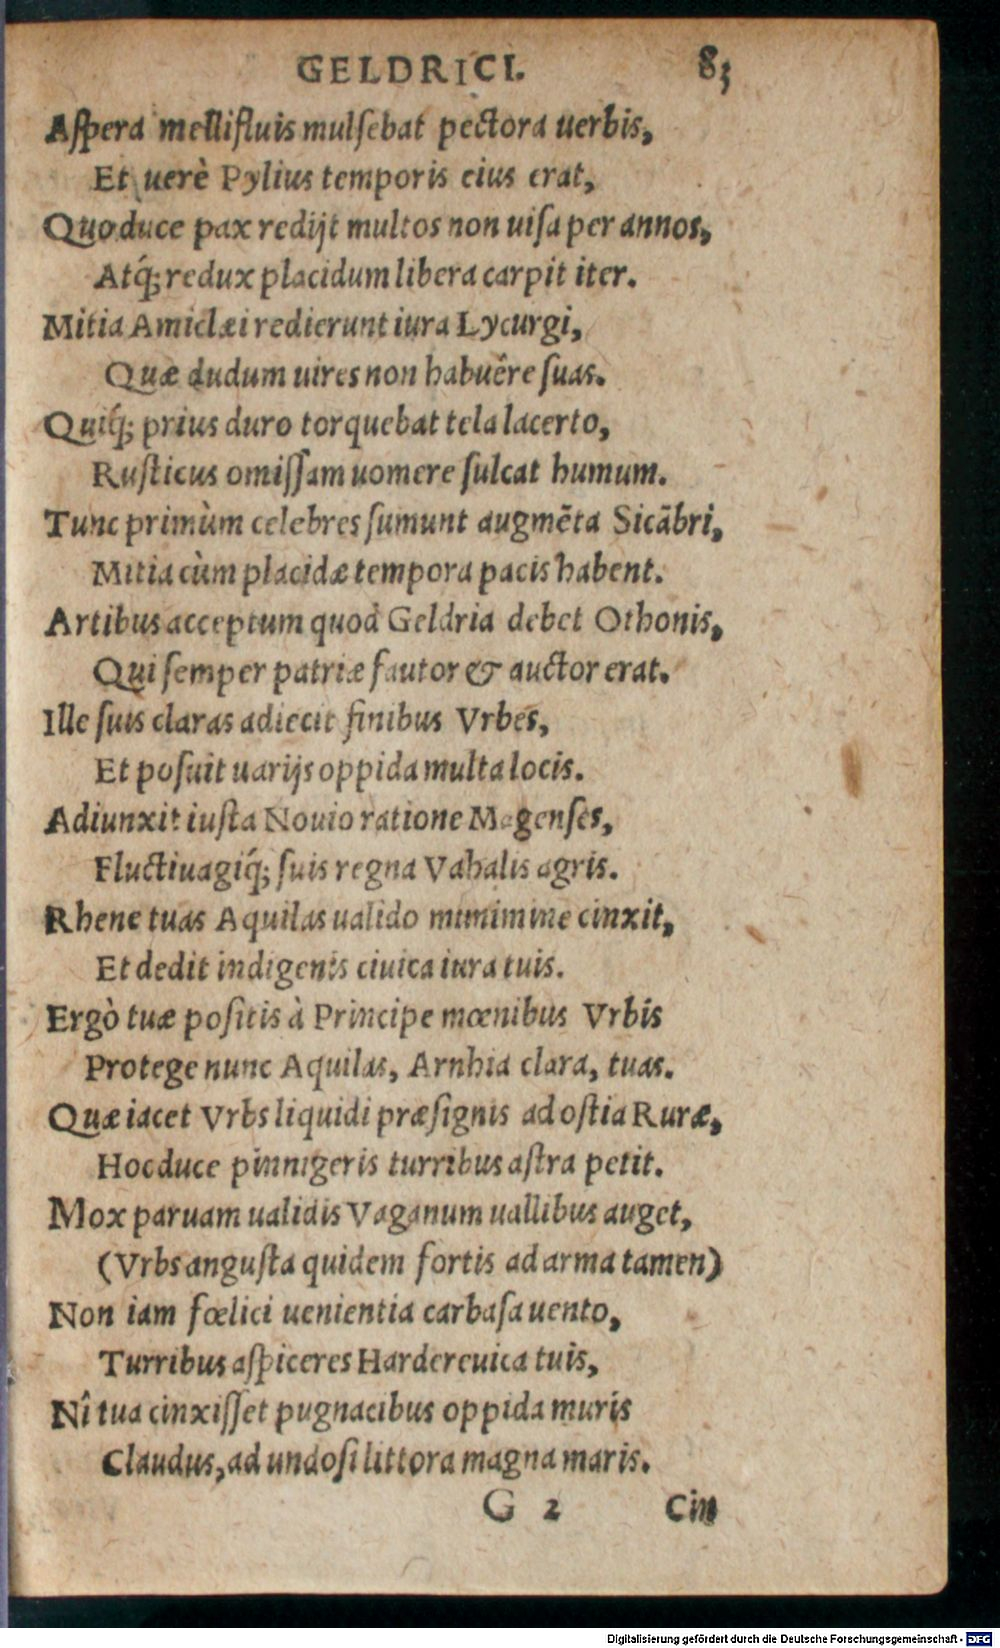 GELDRICI. 83
Aſpera mellifluis mulſebat pectora uerbis,
Et uerè Pylius temporis eius erat,
Quo duce pax redijt multos non uiſa per annos,
Atq́; redux placidum libera carpit iter.
Mitia Amiclæi redierunt iura Lycurgi,
Quæ dudum uires non habuêre ſuas.
Quiq́; prius duro torquebat tela lacerto,
Ruſticus omiſſam uomere ſulcat humum.
Tunc primùm celebres ſumunt augmẽta Sicãbri,
Mitia cùm placidæ tempora pacis habent.
Artibus acceptum quod Geldria debet Othonis,
Qui ſemper patriæ fautor & auctor erat.
Ille ſuis claras adiecit finibus Vrbes,
Et poſuit uarijs oppida multa locis.
Adiunxit iuſta Nouio ratione Magenſes,
Fluctiuagiq́; ſuis regna Vahalis agris.
Rhene tuas Aquilas ualido munimine cinxit,
Et dedit indigenis ciuica iura tuis.
Ergò tuæ poſitis à Principe mœnibus Vrbis
Protege nunc Aquilas, Arnhia clara, tuas.
Quæ iacet Vrbs liquidi præſignis ad oſtia Ruræ,
Hoc duce pinnigeris turribus aſtra petit.
Mox paruam ualidis Vaganum uallibus auget,
(Vrbs anguſta quidem fortis ad arma tamen)
Non iam fœlici uenientia carbaſa uento,
Turribus aſpiceres Hardereuica tuis,
Nî tua cinxiſſet pugnacibus oppida muris
Claudus, ad undoſi littora magna maris.
G 2 Cin
Digitalisierung gefördert durch die Deutsche Forschungsgemeinschaft - DFG